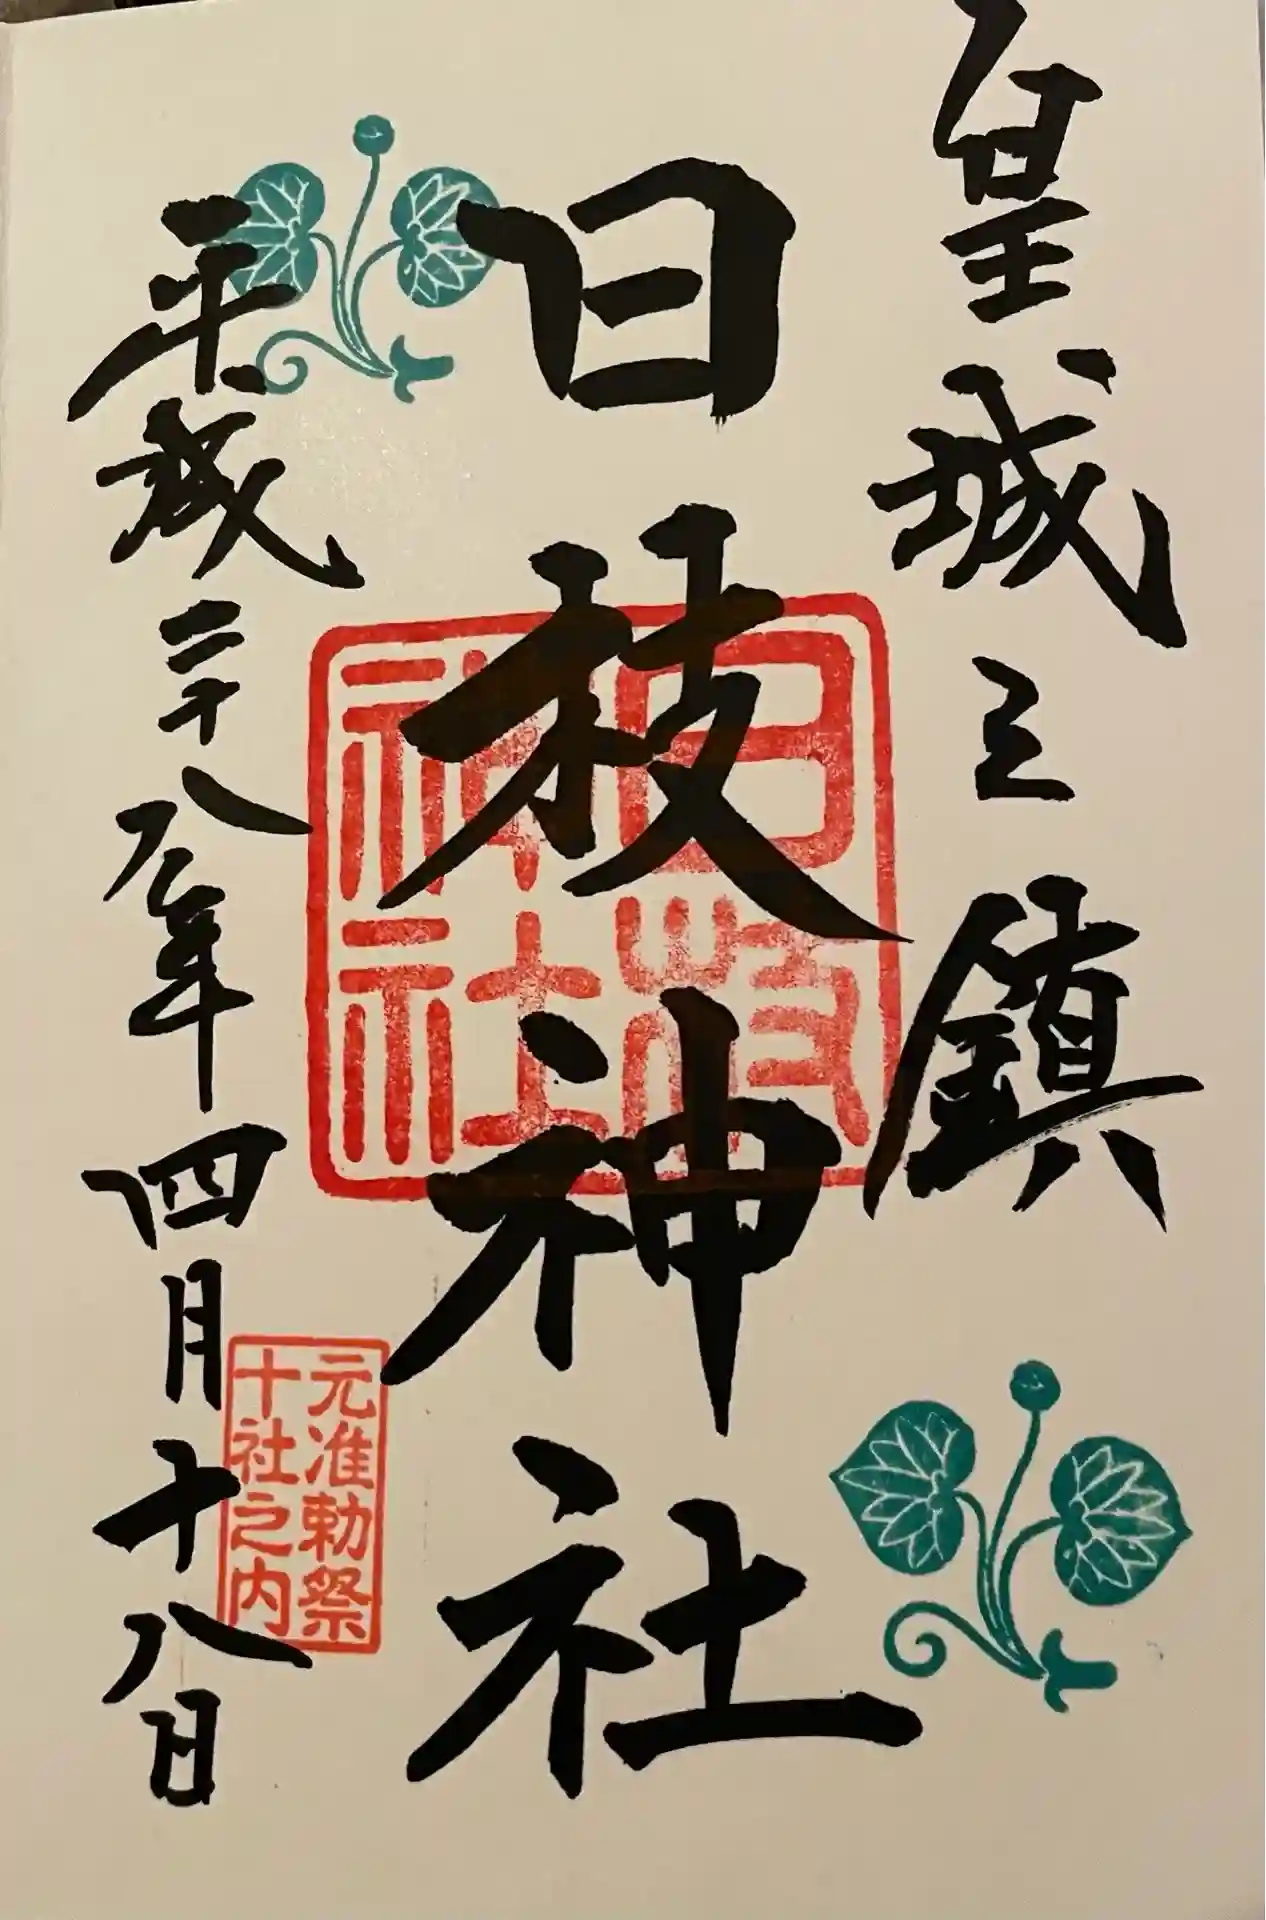 皇城之鎮
日枝神社
日枝神社
元准勅祭
十社之内
平成二十八年四月十八日